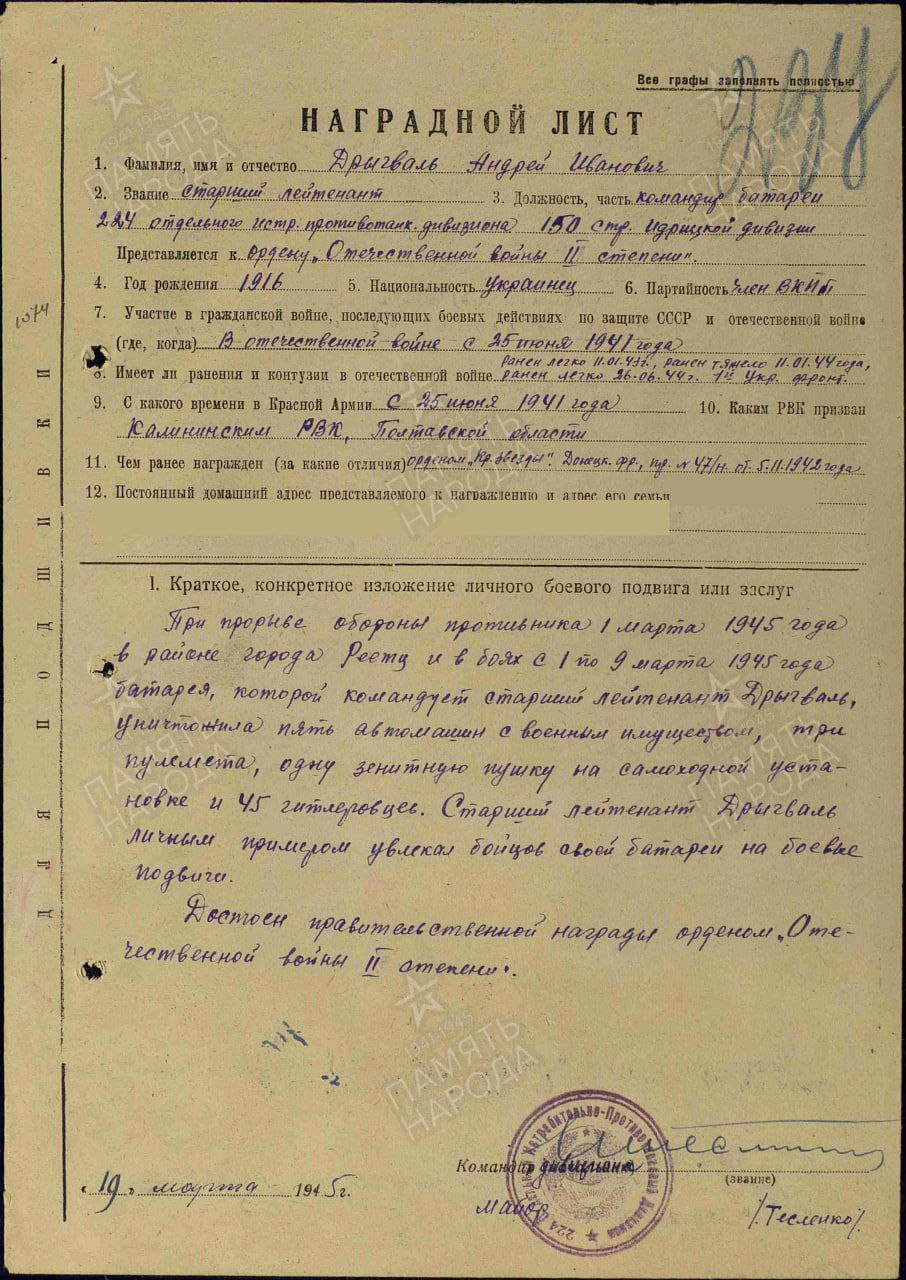 Все графы заполнять полностью
НАГРАДНОЙ ЛИСТ
1. Фамилия, имя и отчество Дрыгваль Андрей Иванович
2. Звание старший лейтенант 3. Должность, часть командир батареи
224 отдельного истр. противотанк. дивизиона 150 стр. Идрицкой дивизии
Представляется к ордену „Отечественной войны II степени".
4. Год рождения 1916 5. Национальность украинец 6. Партийность член ВКПб
7. Участие в гражданской войне, последующих боевых действиях по защите СССР и отечественной войне
(где, когда) В отечественной войне с 25 июня 1941 года
ранен легко 11.01.43г., ранен тяжело 11.01.44 года,
8. Имеет ли ранения и контузии в отечественной войне ранен легко 26.06.44г. 1й Укр. фронт.
9. С какого времени в Красной Армии с 25 июня 1941 года 10. Каким РВК призван
Калининским РВК, Полтавской области
11. Чем ранее награжден (за какие отличия) орденом „Кр. звезды". Донецк. фр., пр. N 47/н. от 5.11.1942 года
12. Постоянный домашний адрес представляемого к награждению и адрес его семьи
1. Краткое, конкретное изложение личного боевого подвига или заслуг
При прорыве обороны противника 1 марта 1945 года
в районе города Реетц и в боях с 1 по 9 марта 1945 года
батарея, которой командует старший лейтенант Дрыгваль,
уничтожила пять автомашин с военным имуществом, три
пулемета, одну зенитную пушку на самоходной уста-
новке и 45 гитлеровцев. Старший лейтенант Дрыгваль
личным примером увлекал бойцов своей батареи на боевые
подвиги.
Достоен правительственной награды орденом „Оте-
чественной войны II степени".
Командир дивизиона
(звание)
„19„ марта 1945г.
майор /Тесленко/.
ДЛЯ ПОДШИВКИ
1574
224 Отдельный Истребительно-Противотанковый Дивизион
ПАМЯТЬ НАРОДА
1941-1945